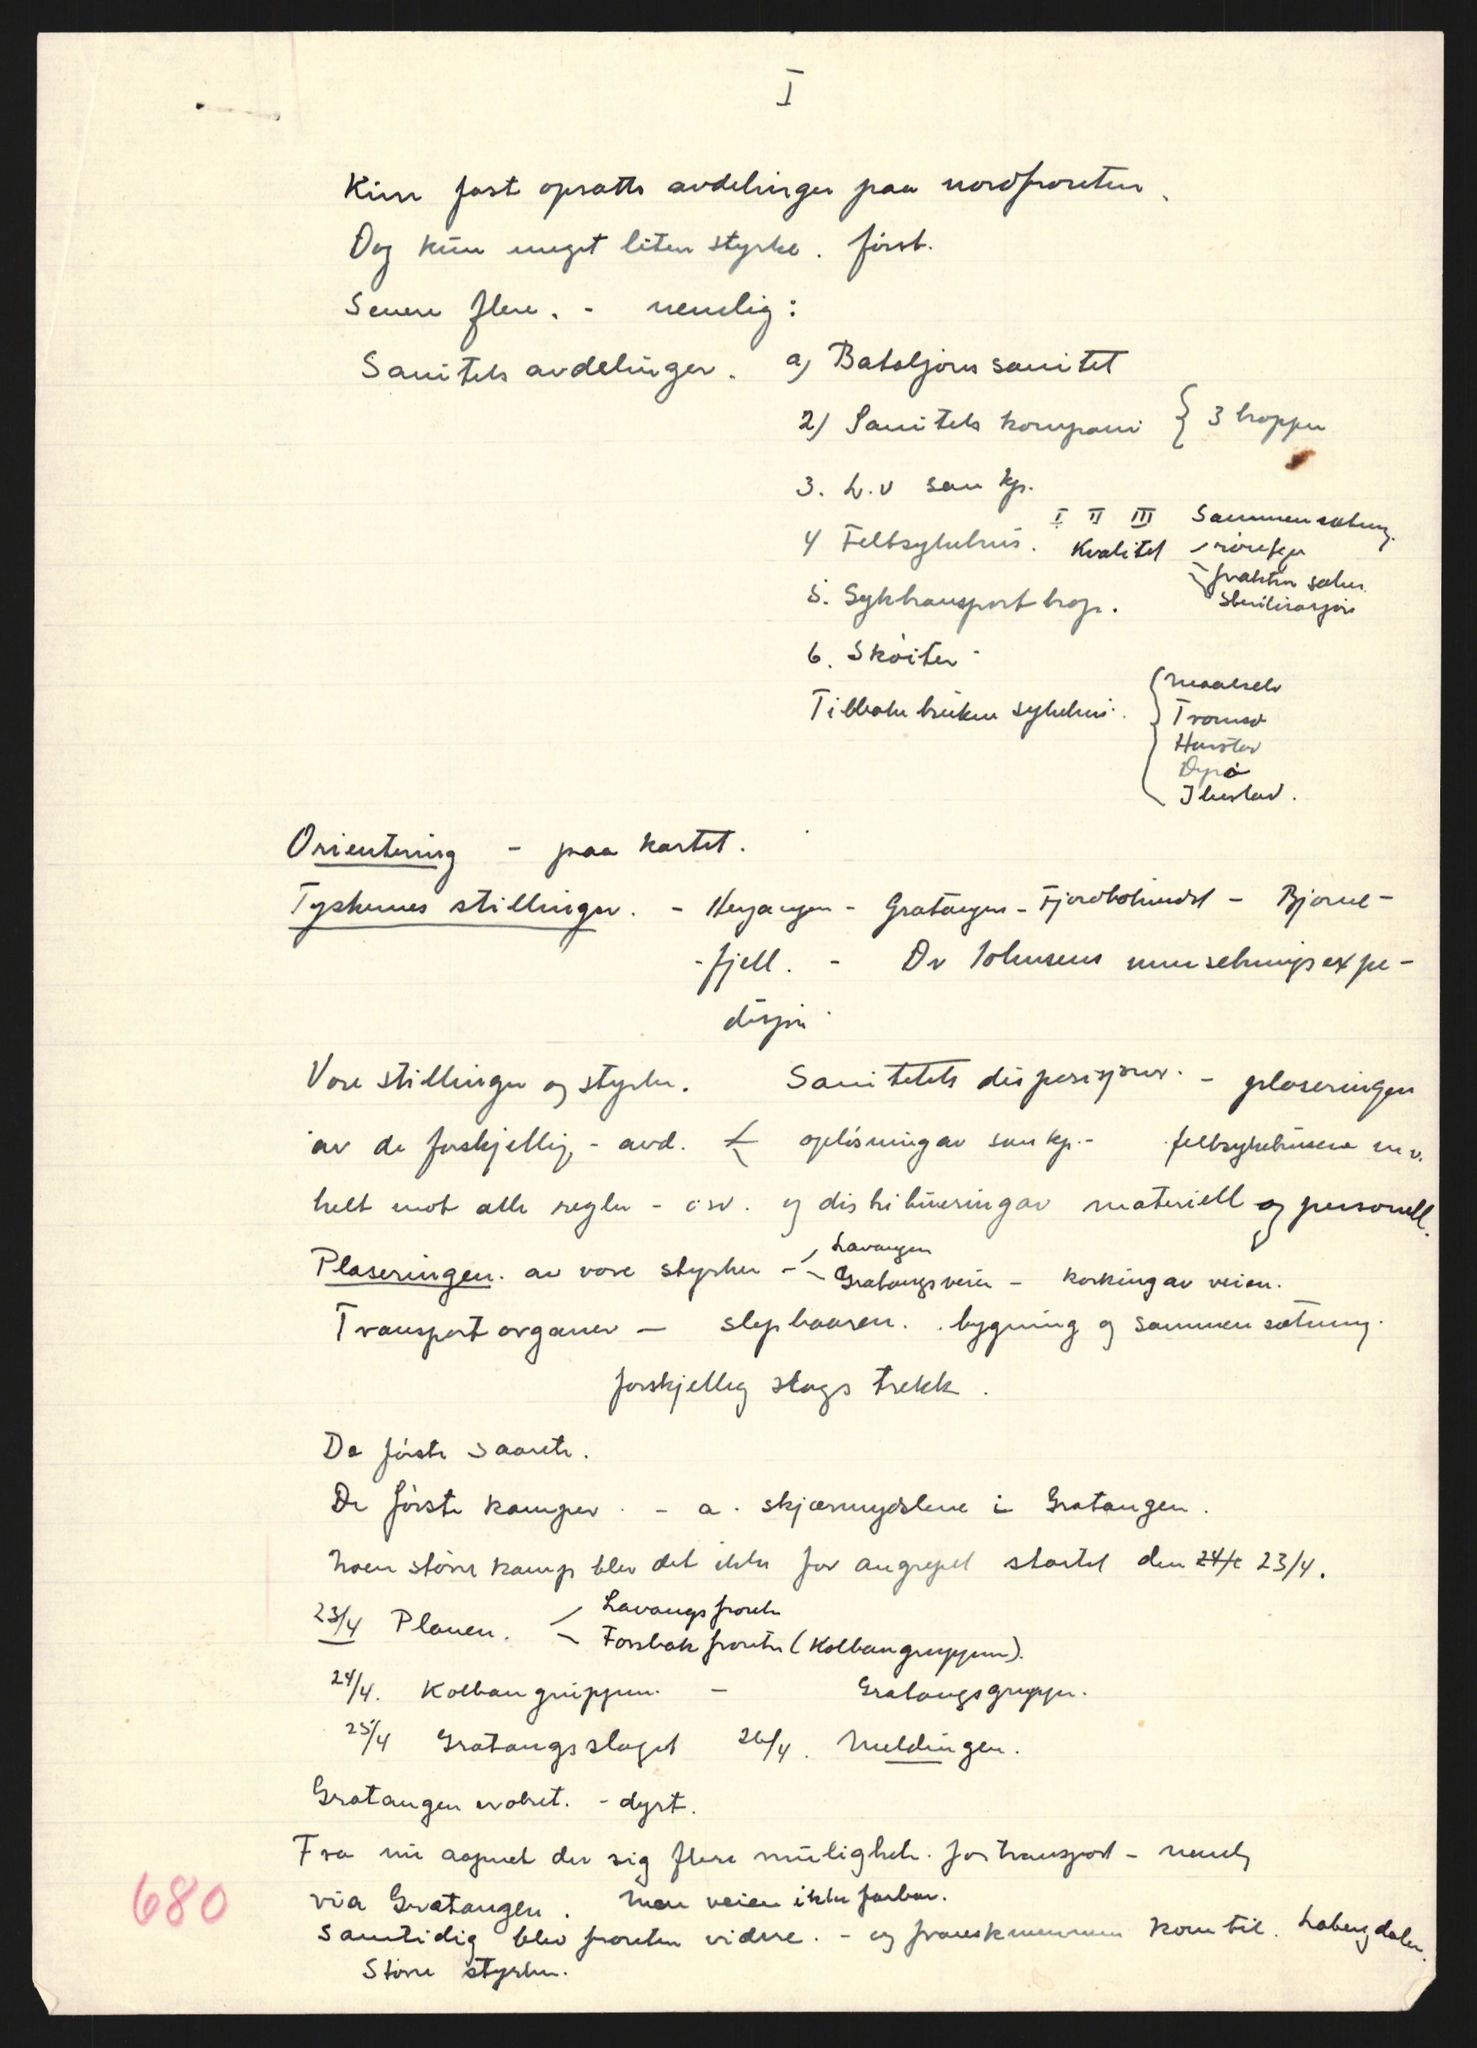 I
Kun fast opsatte avdelinger paa nordfronten.
Dog kun meget liten styrke. først.
Senere flere. - nemlig:
Sanitets avdelinger. a) Bataljons sanitet
2) Sanitets kompani { 3 tropper
3. L.v san kp.
4 Feltsykehus. I II III Sammensætning.
Kvalitet
sterilisasjon
5. Syketransport trop.
6. Skøiter
Tilbake brukne sykehus.
Maalselv
Tromsø
Harstad
Dyrø
Ibestad.
Orientering - paa kartet.
Tyskernes stillinger. - Herjangen - Gratangen - Fjordbotnmidt - Bjørne-
-fjell. - Dr Johnsens unnsetningsexpe-
disjon
Vore stillinger og styrker. Sanitetets disposisjoner. - plaseringen
av de forskjellig - avd. oplösning av san kp. - feltsykehusene m.v.
helt mot alle regler - osv. og distribuering av materiell og personell.
Plaseringen. av vore styrker - Lavangen
Gratangsveien - korking av veien.
Transport organer - slepbaaren. bygning og sammensætning.
forskjellig slags trekk.
De første saarete.
De første kamper. - a. skjærmydslene i Gratangen.
Noen større kamp blev det ikke før angrepet startet den 24/4 23/4.
23/4 Planen. Lavangsfronten
Fossbakfronten (Kolbangruppen).
24/4. Kolbangruppen. - Gratangsgruppen.
25/4 Gratangsslaget 26/4. Meldingen.
Gratangen erobret. - dyrt.
Fra nu aapnet der sig flere muligheter for transport - nemlig
via Gratangen. Men veien ikke farbar.
Samtidig blev fronten videre. - og franskmennene kom til. Labergdalen.
Større styrker.
680